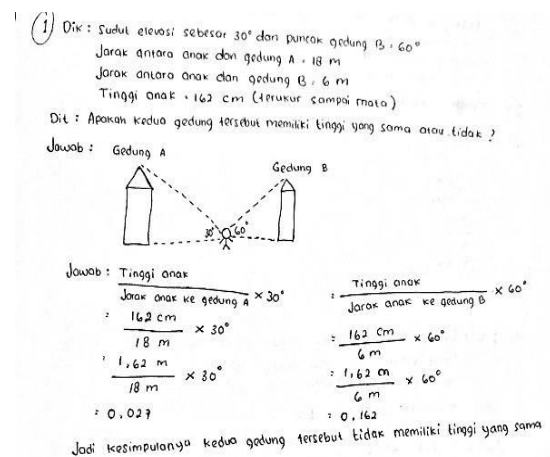 ① Dik : Sudut elevasi sebesar 30° dan puncak gedung B . 60°
Jarak antara anak dan gedung A . 18 m
Jarak antara anak dan gedung B . 6 m
Tinggi anak . 162 cm (terukur sampai mata)
Dit : Apakah kedua gedung tersebut memiliki tinggi yang sama atau tidak ?
Jawab : Gedung A
Gedung B
30° 60°
Jawab : Tinggi anak / Jarak anak ke gedung A × 30°
: 162 cm / 18 m × 30°
: 1,62 m / 18 m × 30°
: 0,027
: Tinggi anak / Jarak anak ke gedung B × 60°
: 162 cm / 6 m × 60°
: 1,62 m / 6 m × 60°
: 0,162
Jadi kesimpulanya kedua gedung tersebut tidak memiliki tinggi yang sama